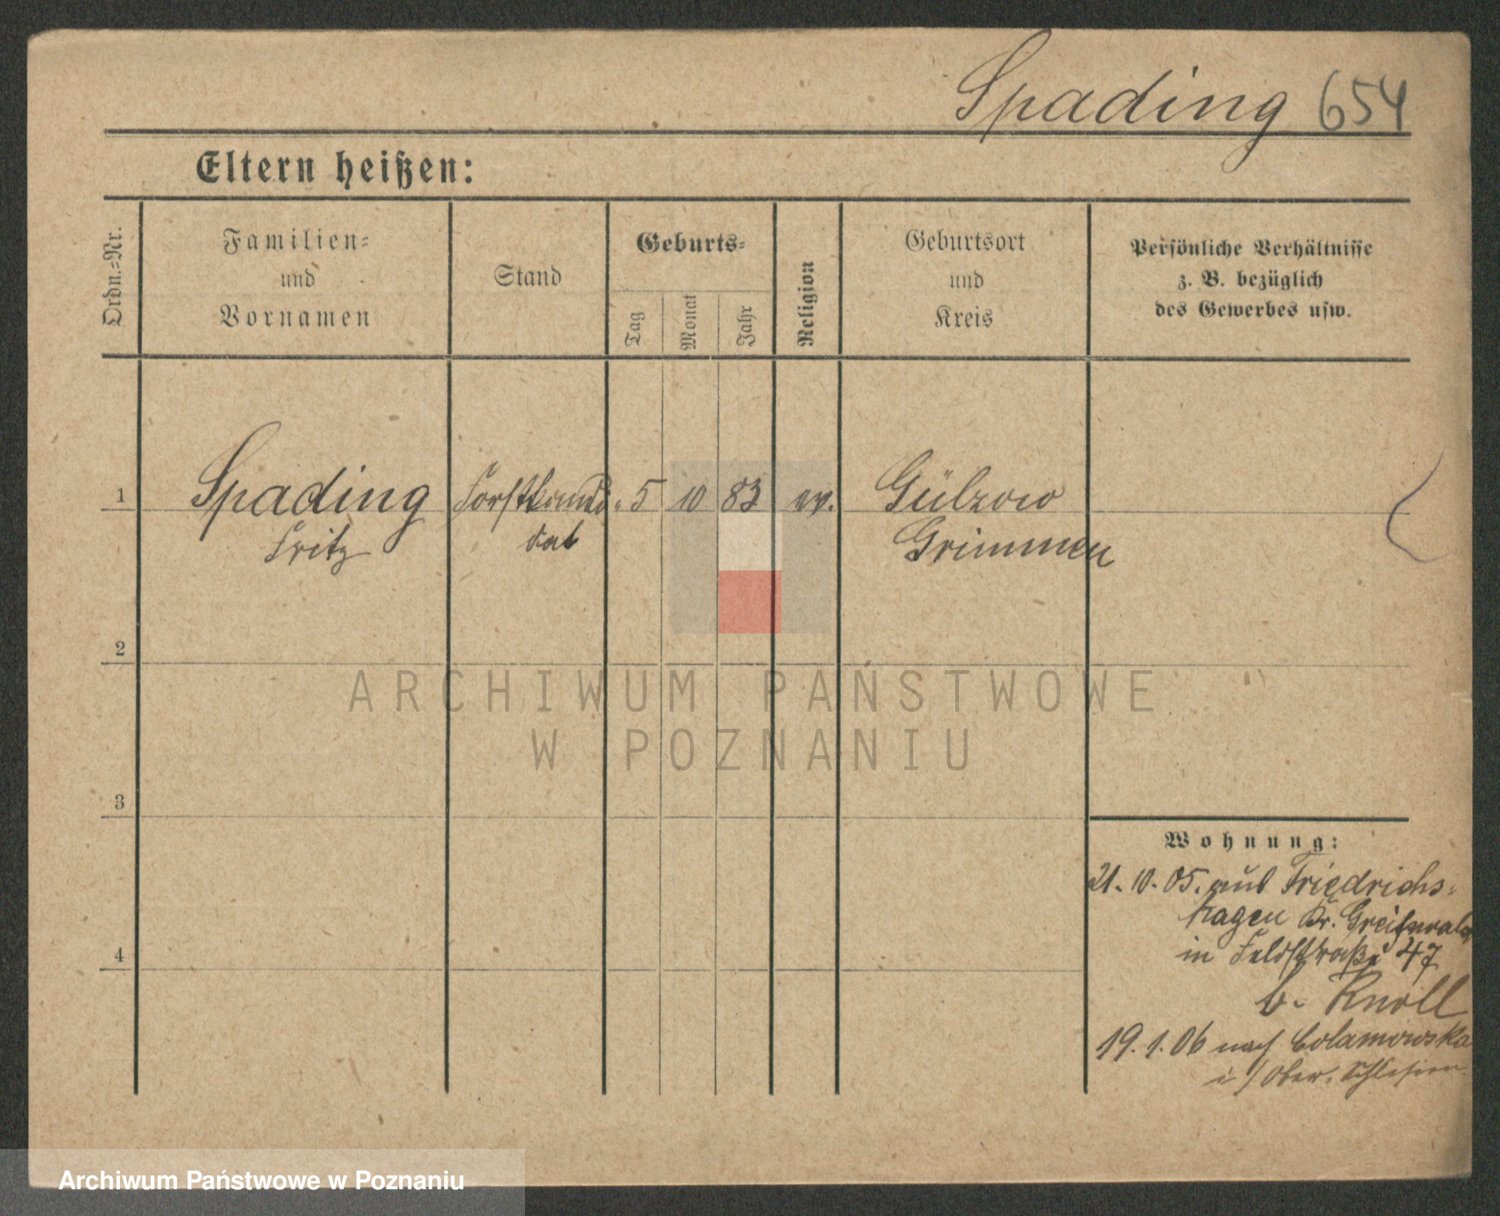 Spading 654
Eltern heißen:
Ordn.=Nr.
Familien=
und
Vornamen
Stand
Geburts=
Tag
Monat
Jahr
Religion
Geburtsort
und
Kreis
Persönliche Verhältnisse
z. B. bezüglich
des Gewerbes usw.
1 Spading Forstkandi- 5 10 83 ev. Gülzow
Fritz dat Grimmen
2
ARCHIWUM PAŃSTWOWE
W POZNANIU
3
Wohnung:
21.10.05. aus Friedrichs=
hagen Kr. Greifswald
in Feldstraße 47
b. Knoll
4
19.1.06 nach
i/ Ober. Schlesien.
Archiwum Państwowe w Poznaniu